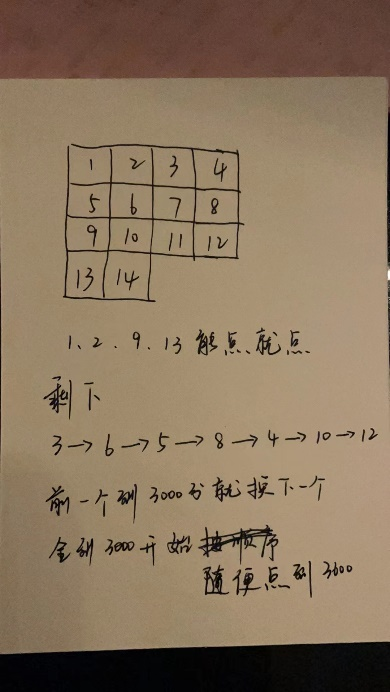 1 2 3 4
5 6 7 8
9 10 11 12
13 14
1、2、9、13 能点就点
剩下
3→6→5→8→4→10→12
前一个到3000分就换下一个
全到3000开始按顺序
随便点到3600